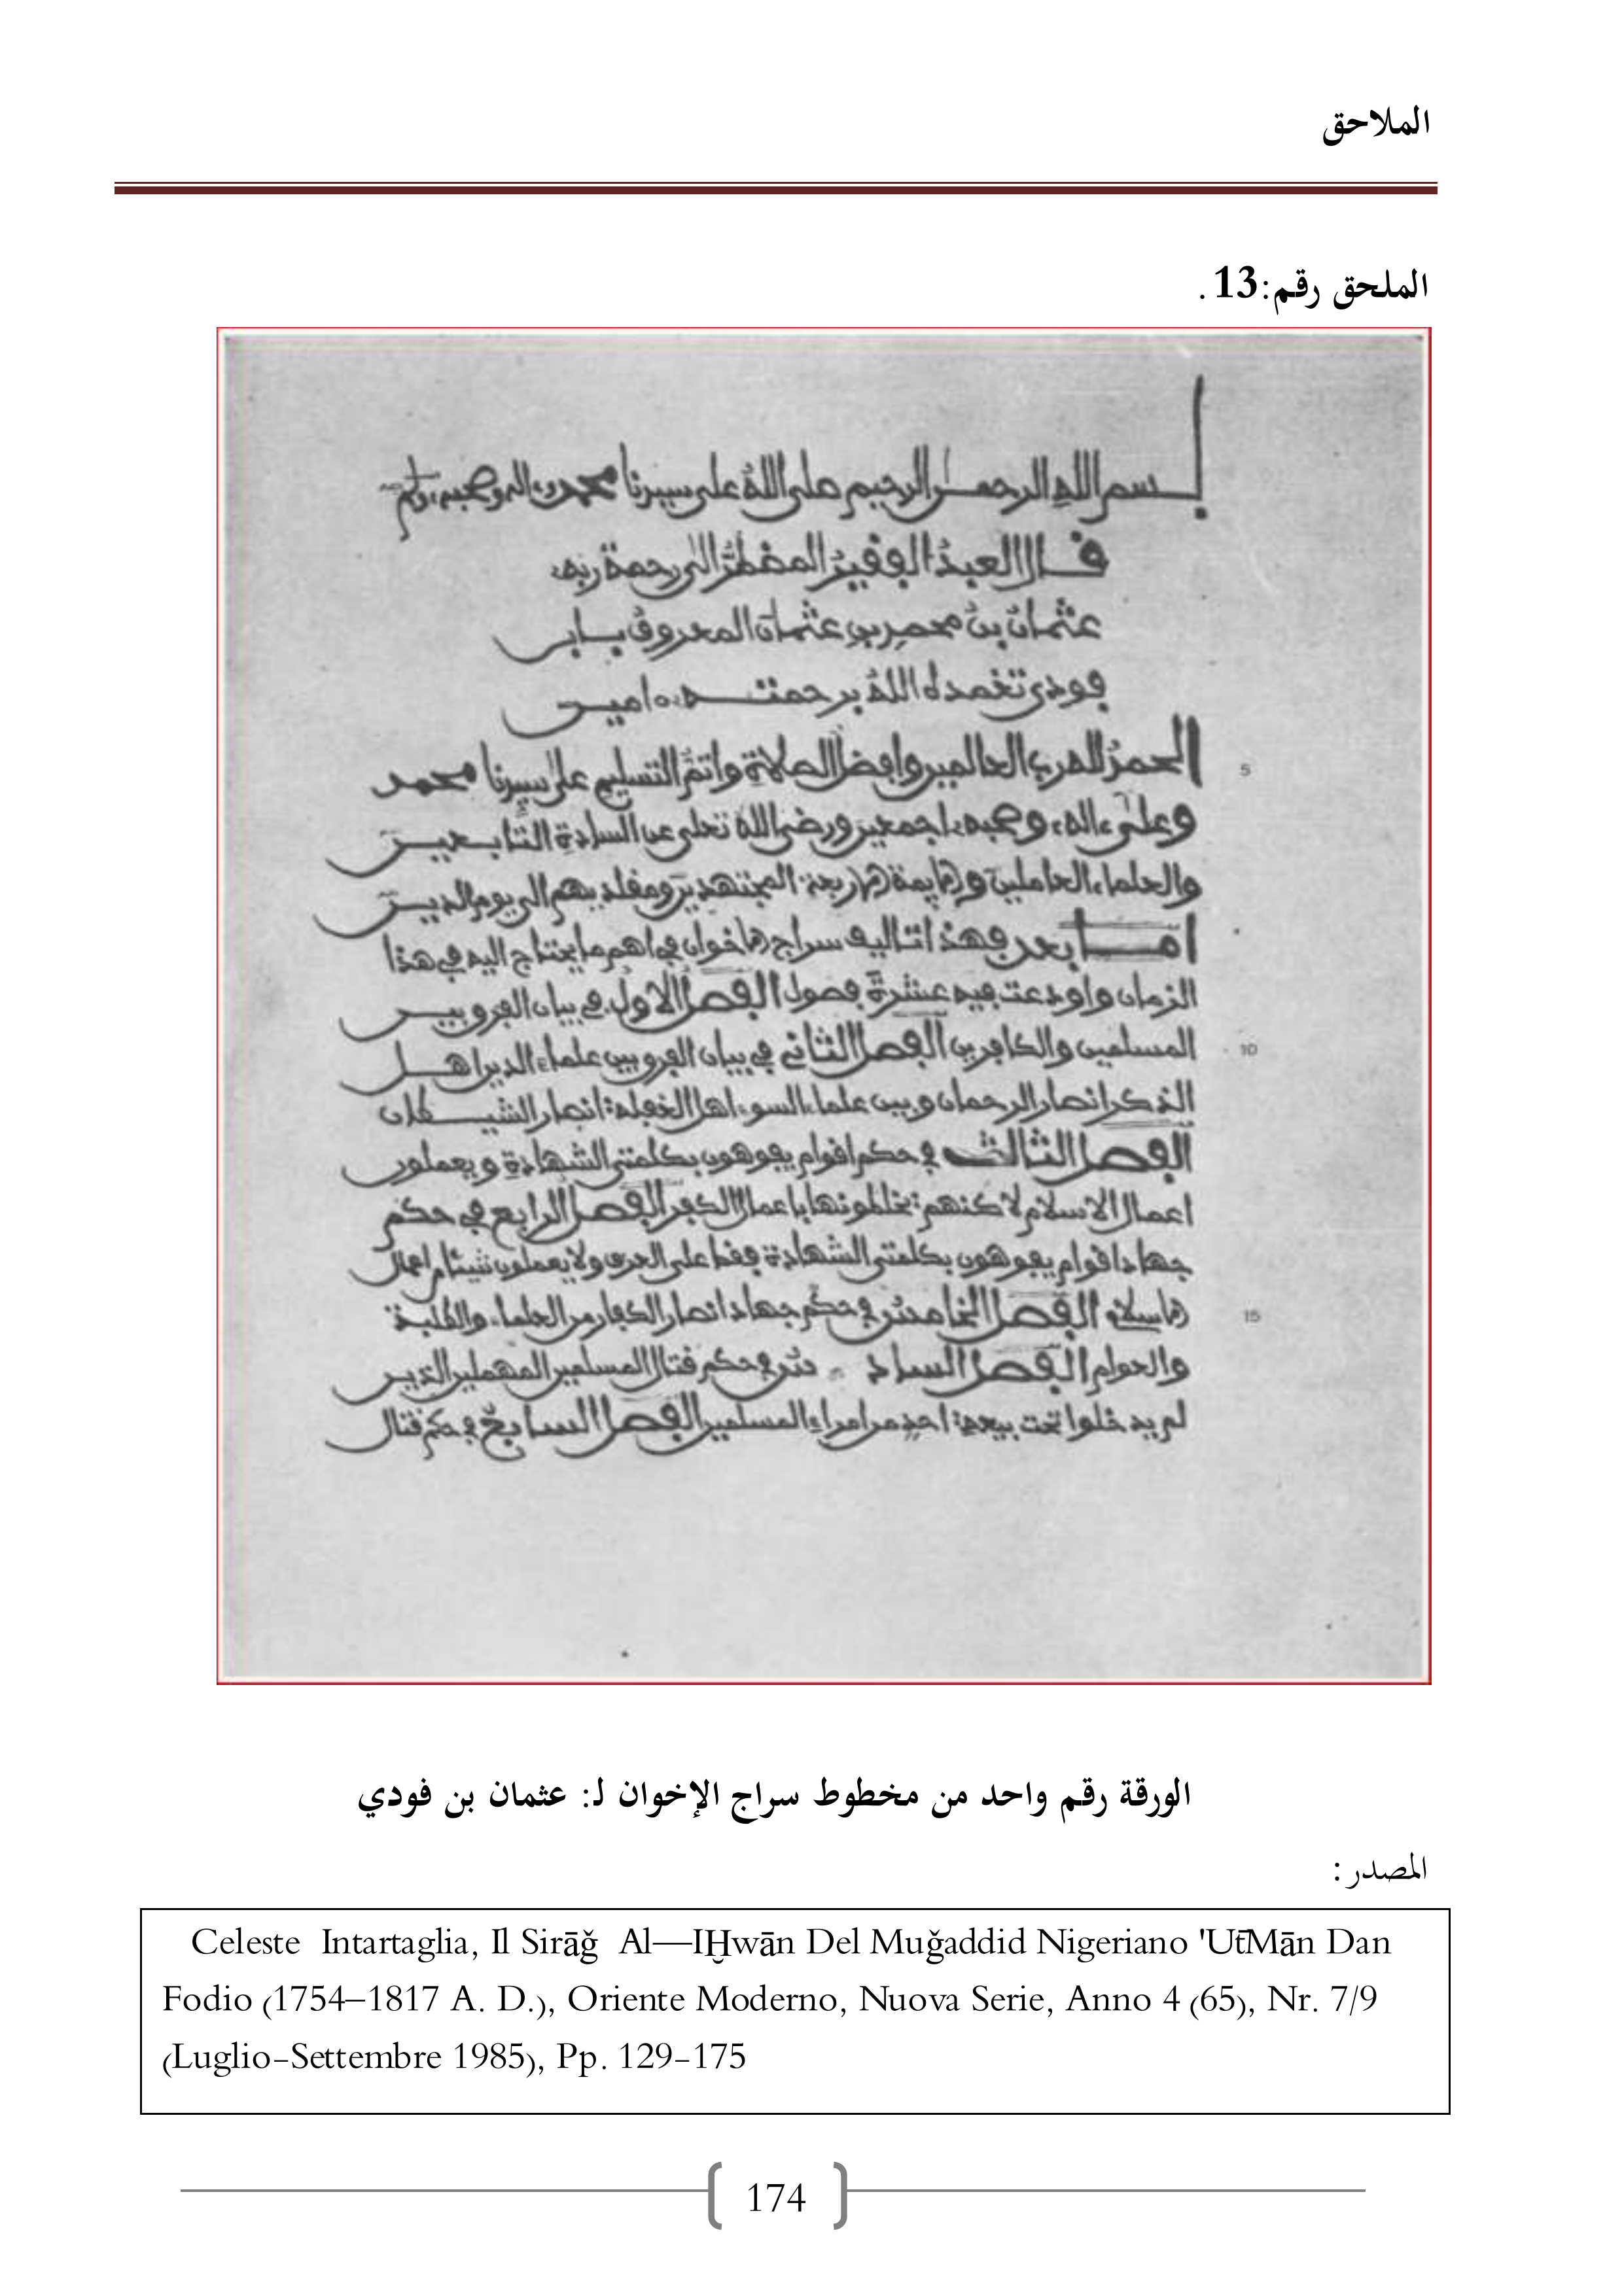 الملاحق
الملحق رقم:13.
بسم الله الرحمن الرحيم صلى الله على سيدنا محمد وءاله وصحبه وسلم
قال العبد الفقير المضطر الى رحمة ربه
عثمان بن محمد بن عثمان المعروف بابن
فودي تغمده الله برحمته ءامين
الحمد لله رب العالمين وافضل الصلاة واتم التسليم على سيدنا محمد
5
وعلى ءاله وصحبه اجمعين ورضي الله تعلى عن السادة التابعين
والعلماء العاملين والايمة الاربعة المجتهدين ومقلديهم الى يوم الدين
اما بعد فهذا تاليف سراج الاخوان في اهم ما يحتاج اليه في هذا
الزمان واودعت فيه عشرة فصول الفصل الاول في بيان الفرق بين
المسلمين والكافرين الفصل الثاني في بيان الفرق بين علماء الدين اهل
10
الذكر انصار الرحمان وبين علماء السوء اهل الغفلة انصار الشيطان
الفصل الثالث في حكم اقوام يفوهون بكلمتي الشهادة ويعملون
اعمال الاسلام لاكنهم يخلطونها باعمال الكفر الفصل الرابع في حكم
جهاد اقوام يفوهون بكلمتي الشهادة فقط على العرف ولا يعملون شيئا من اعمال
الاسلام الفصل الخامس في حكم جهاد انصار الكفار من العلماء والطلبة
15
والعوام الفصل السادس في حكم قتال المسلمين المهملين الذين
لم يدخلوا تحت بيعة احد من امراء المسلمين الفصل السابع في حكم قتال
الورقة رقم واحد من مخطوط سراج الإخوان لـ: عثمان بن فودي
المصدر:
Celeste Intartaglia, Il Sirāğ Al—IḪwān Del Muğaddid Nigeriano 'UṯMān Dan
Fodio (1754–1817 A. D.), Oriente Moderno, Nuova Serie, Anno 4 (65), Nr. 7/9
(Luglio-Settembre 1985), Pp. 129-175
174